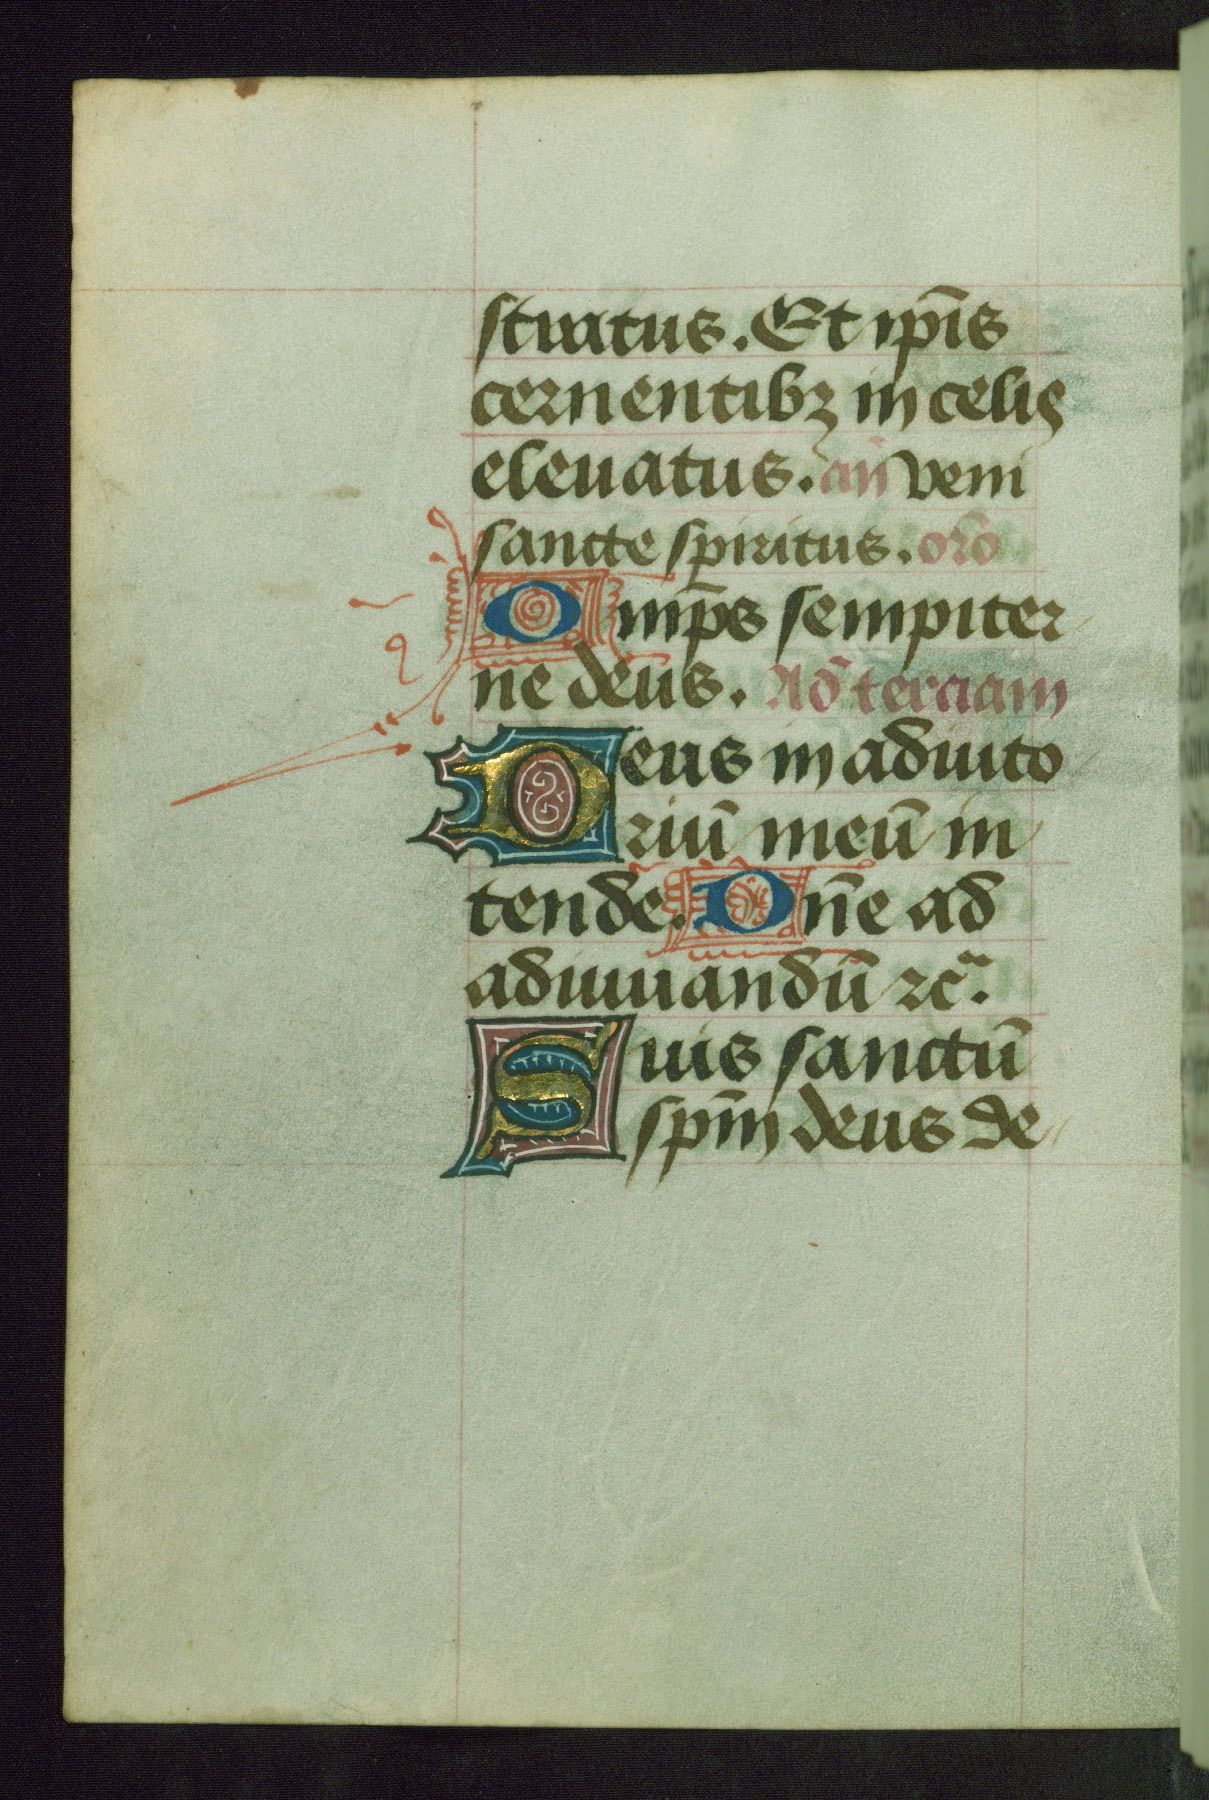 stratus. Et ip̄is
cernentibꝫ in celis
eleuatus. an̄ veni
sancte spiritus. oro̅
Omp̄s sempiter
ne deus. Ad terciam
Deus in adiuto
riū meū in
tende. Dn̄e ad
adiuuandū ⁊c̃.
Suis sanctū
spm̄ deus de